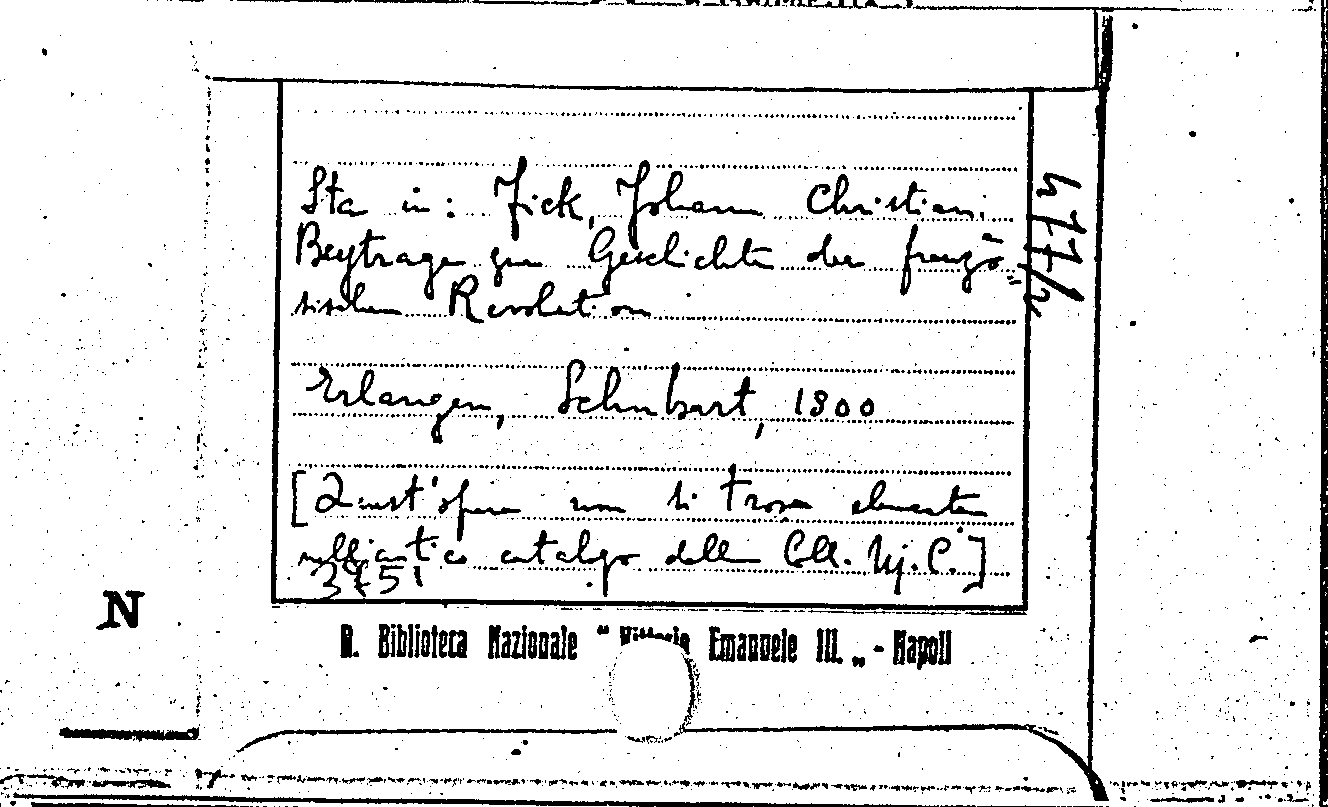 Sta in: Fick, Johann Christian.
Beytrage zur Geschichte der französ-
sischen Revolution
Erlangen, Schubart, 1800
[Quest'opera non si trova elencata
nell'antico catalogo della Coll.
R. Biblioteca Nazionale " Vittorio Emanuele III. „ - Napoli
N
477/2